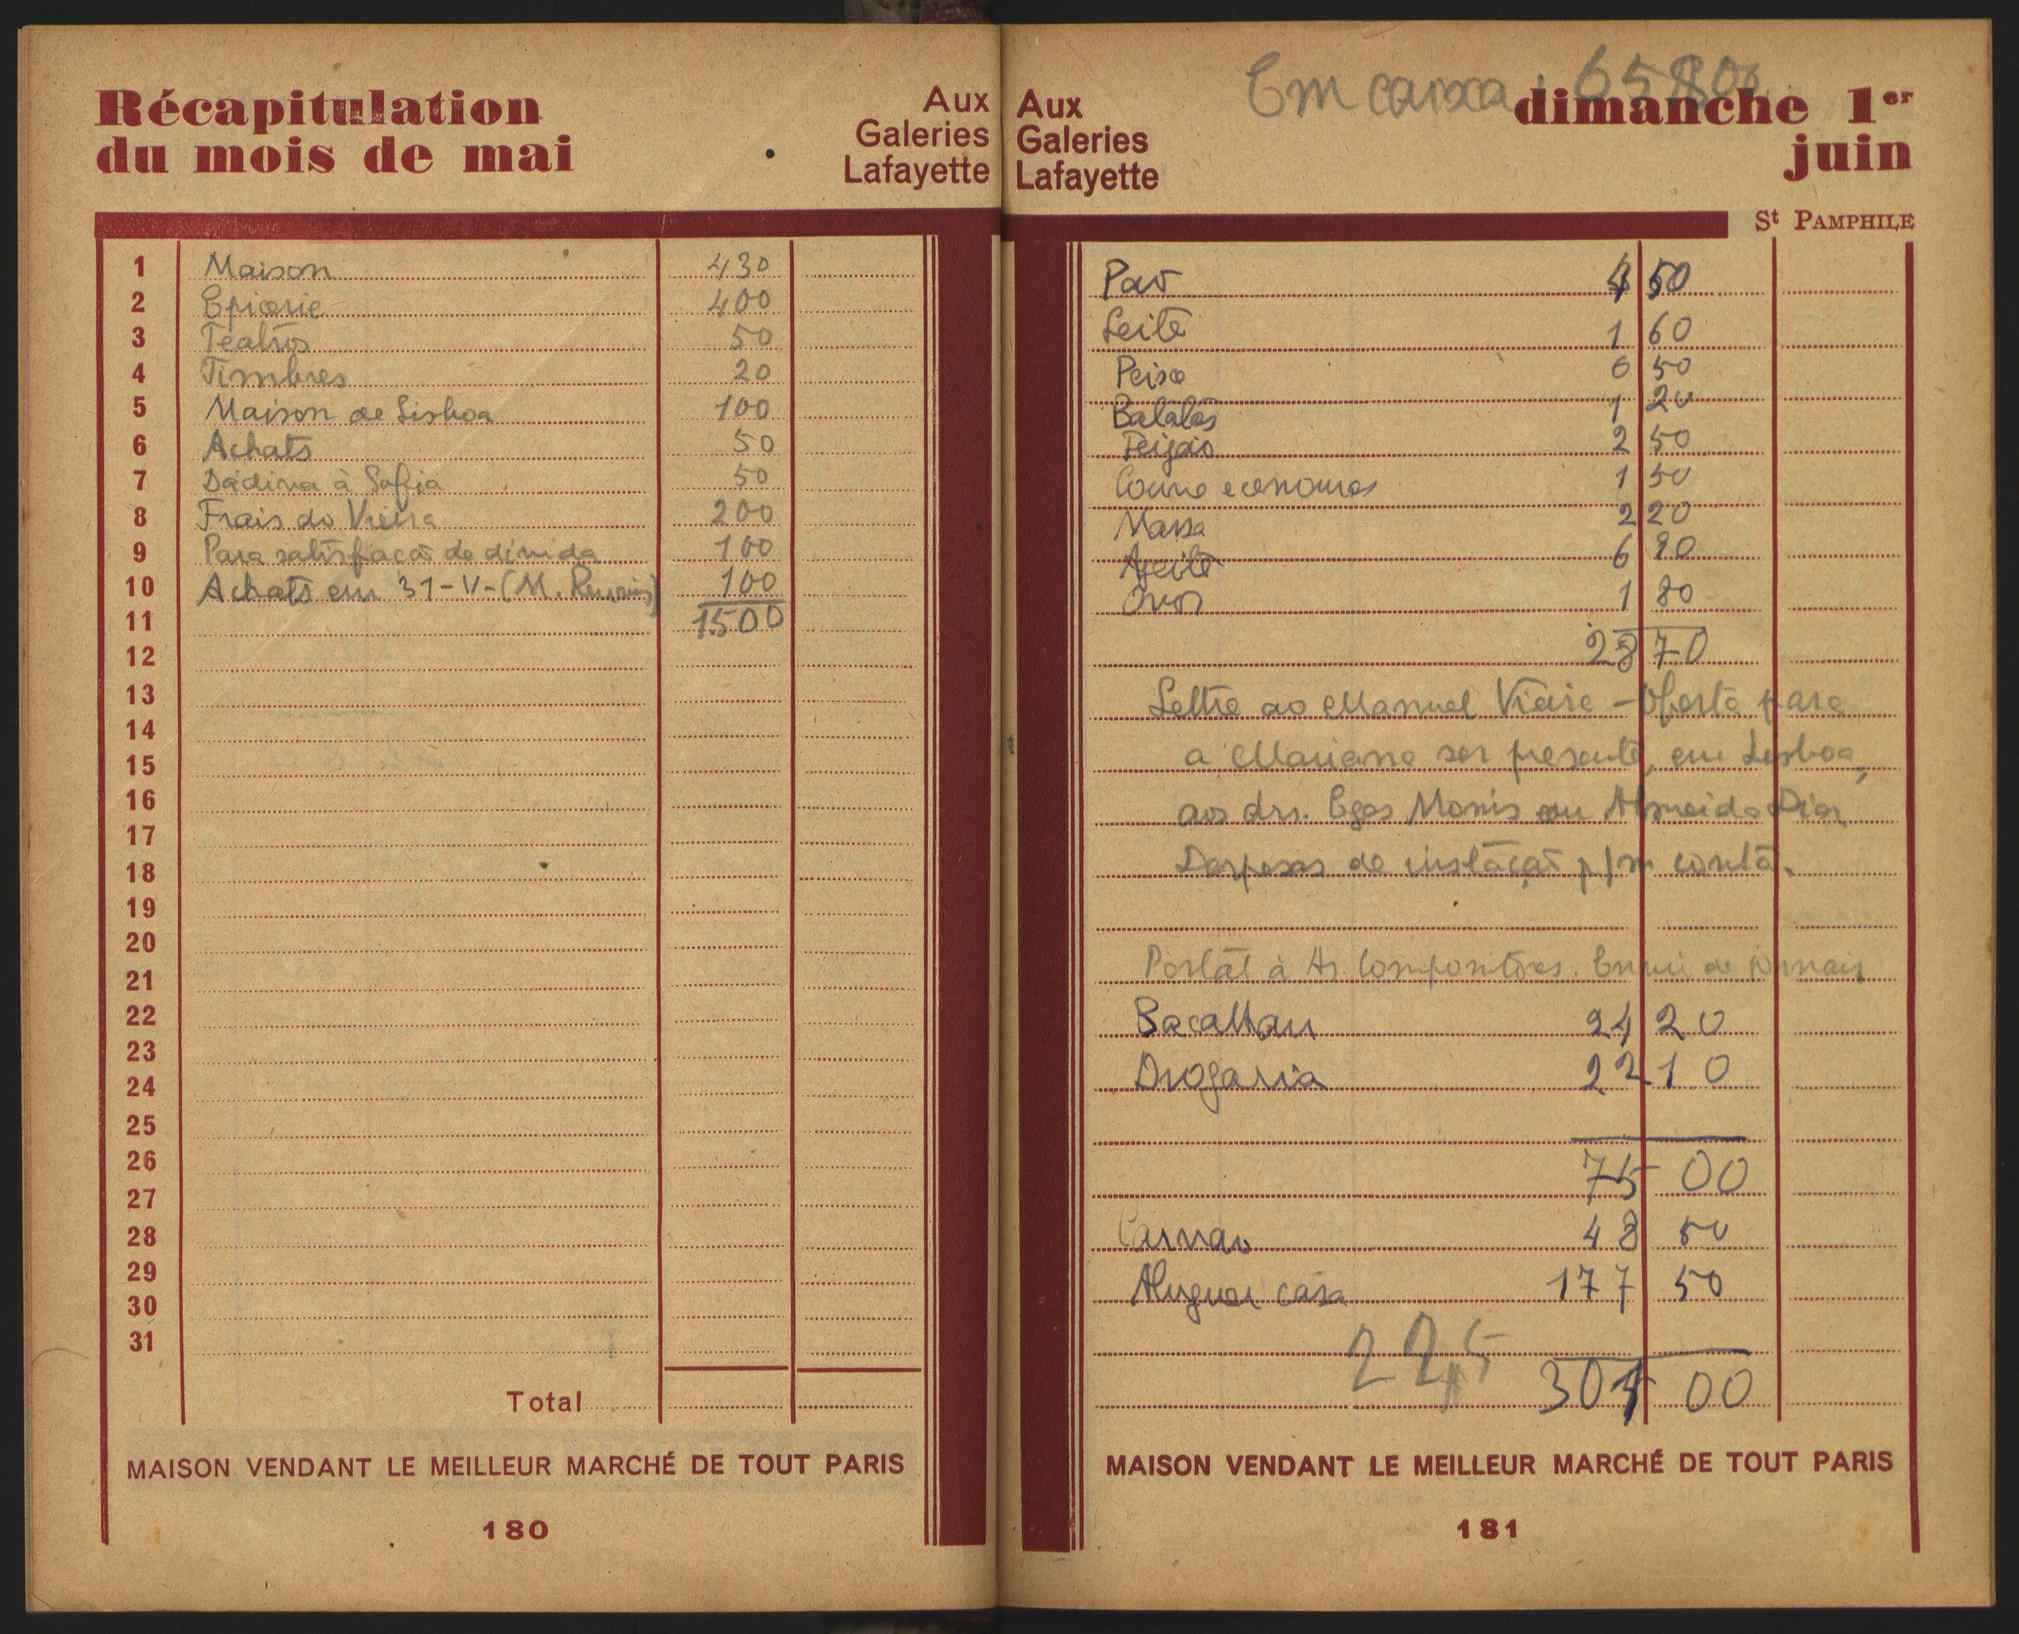 Récapitulation
du mois de mai
Aux
Galeries
Lafayette
1 Maison 430
2 Epicerie 400
3 Teatros 50
4 Timbres 20
5 Maison de Lisboa 100
6 Achats 50
7 Dádiva à Sofia 50
8 Frais do Vieira 200
9 Para satisfação de dívida 100
10 Achats em 31-V-(M. 100
11 1500
12
13
14
15
16
17
18
19
20
21
22
23
24
25
26
27
28
29
30
31
Total
MAISON VENDANT LE MEILLEUR MARCHÉ DE TOUT PARIS
180
Em caixa
Aux
Galeries
Lafayette
dimanche 1er
juin
St PAMPHILE
Pão 4 50
Leite 1 60
Peixe 6 50
Batatas 1 20
Feijão 2 50
Couve e cenouras 1 50
Massa 2 20
Azeite 6 90
Ovos 1 80
28 70
Lettre ao Manuel Vieira - Oferta para
a Mariana ser presente, em Lisboa,
aos drs. Egas Monis ou Almeida Dias
Despesas de p/m conta.
Postal à As. Compositores. Envio de jornais
Bacalhau 24 20
Drogaria 22 10
75 00
Carvão 48 50
Aluguer casa 177 50
225
301 00
MAISON VENDANT LE MEILLEUR MARCHÉ DE TOUT PARIS
181